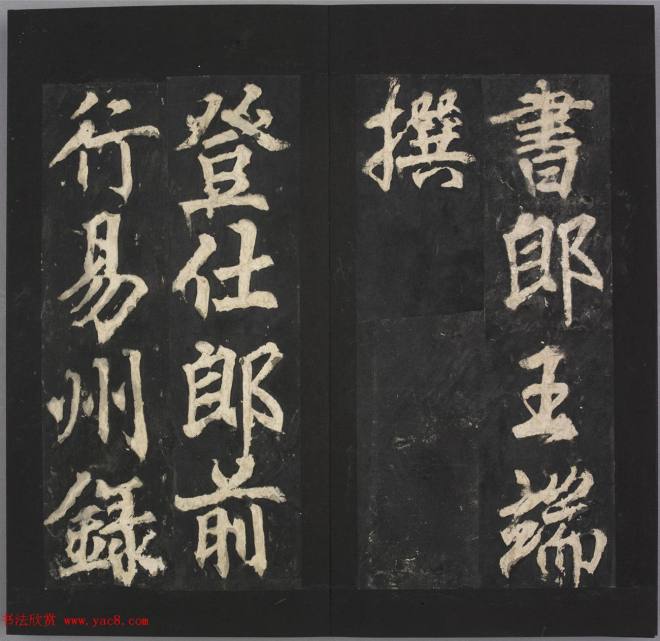 書郎王端
撰
登仕郎前
行易州錄
书法欣赏 www.yac8.com